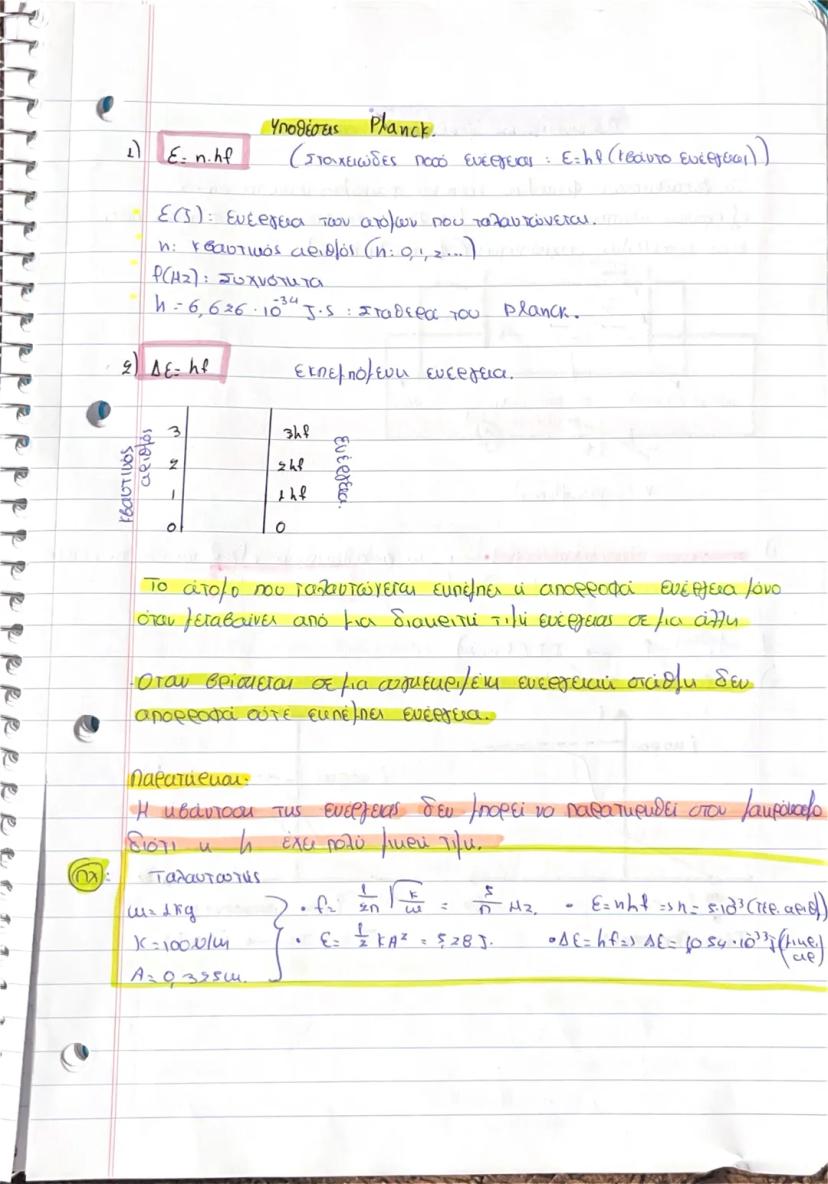 Υποθέσεις Planck.
1) Ε= n.hf (Στοιχειώδες ποσό ενέργειας : Ε=hf (κβάντο ενέργειας))
Ε(J): Ενέργεια των ατόμων που ταλαντώνεται.
n: κβαντικός αριθμός (n: 0,1,2...)
f(Hz): Συχνότητα
h = 6,626·10⁻³⁴ J·s : Σταθερά του Planck.
2) ΔΕ= hf εκπεμπόμενη ενέργεια.
κβαντικός αριθμός
3 3hf
2 2hf
1 1hf
0 0
ενέργεια.
Το άτομο που ταλαντώνεται εκπέμπει ή απορροφά ενέργεια μόνο
όταν μεταβαίνει από μια διακριτή τιμή ενέργειας σε μια άλλη
Όταν βρίσκεται σε μια συγκεκριμένη ενεργειακή στάθμη δεν
απορροφά ούτε εκπέμπει ενέργεια.
Παρατήρηση:
Η κβάντωση της ενέργειας δεν μπορεί να παρατηρηθεί στον μακρόκοσμο
διότι η h έχει πολύ μικρή τιμή.
πχ: Ταλαντωτής
m=1kg • f= 1/2π √k/m = 5/π Hz. • Ε=nhf =>n=
k=100N/m • Ε= 1/2 kA² = 5,28 J. • ΔΕ=hf=> ΔΕ=
A=0,325m.